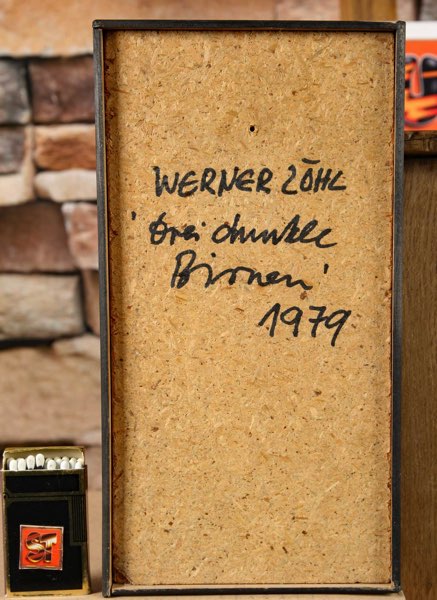 WERNER ZÖHL
'drei dunkle
Birnen'
1979